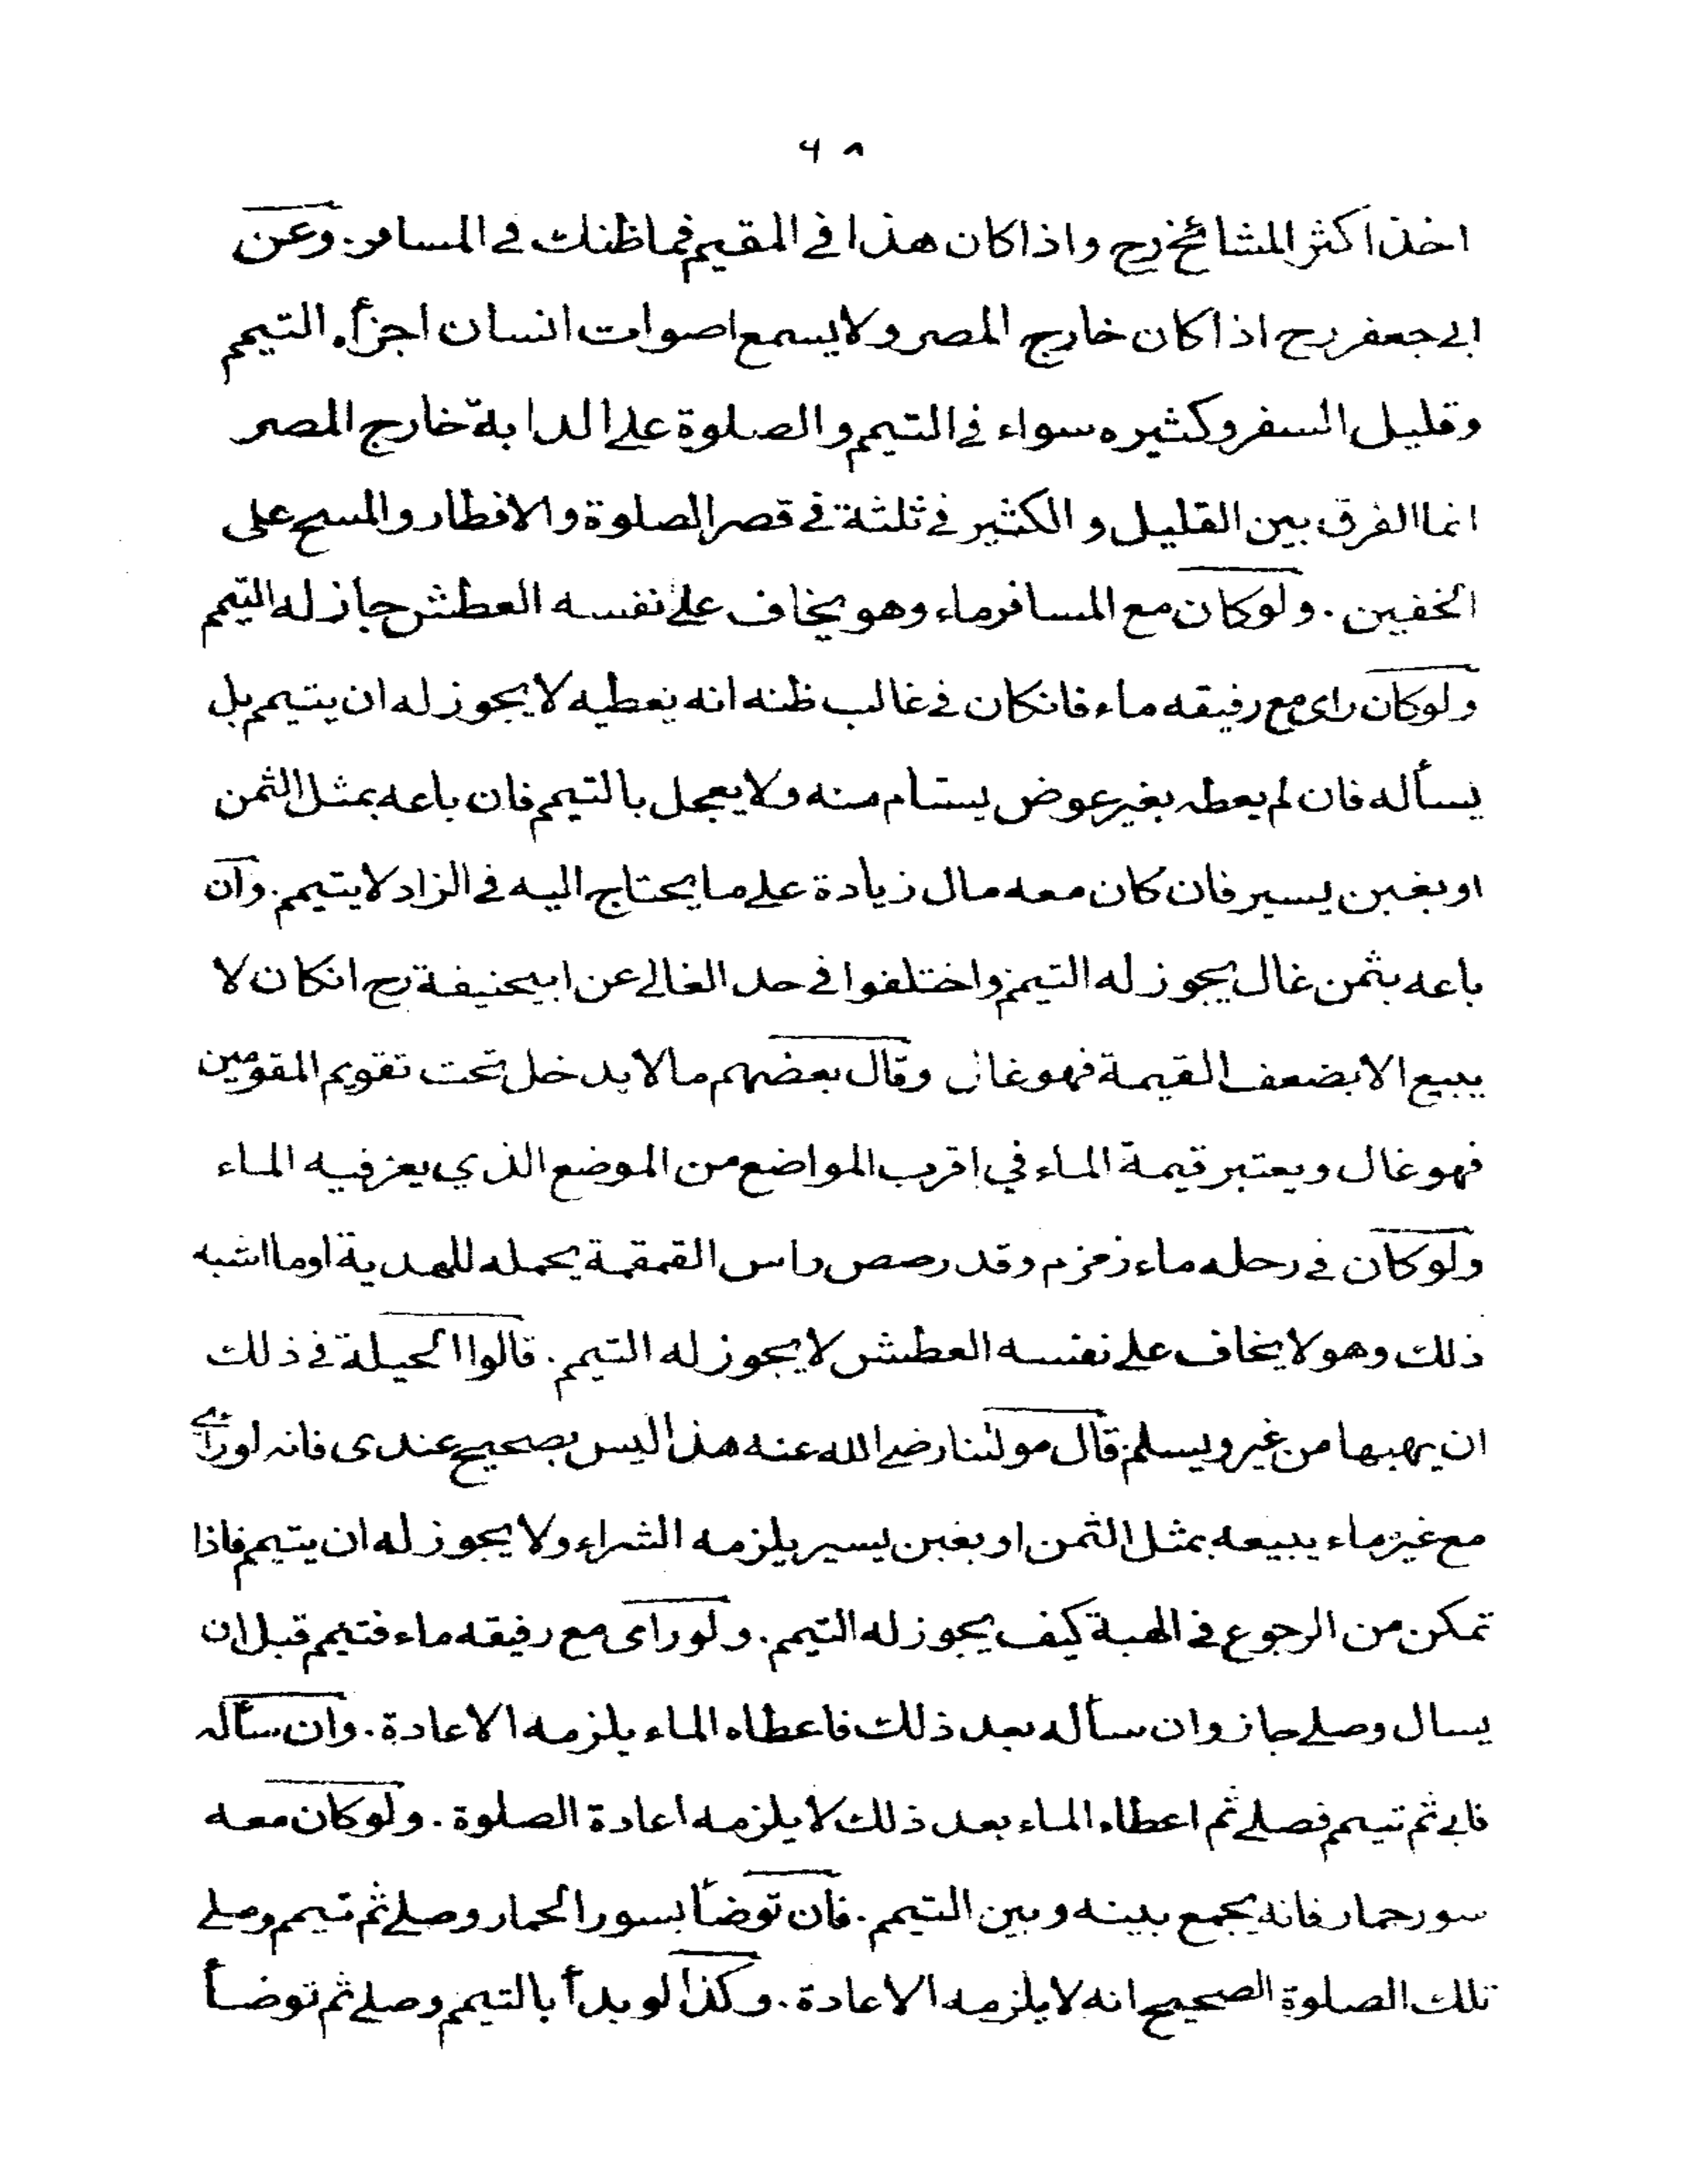 ٦٨
اخذ اكثر المشائخ رح واذا كان هذا في المقيم فما ظنك في المسافر. وعن
ابي جعفر رح اذا كان خارج المصر ولا يسمع اصوات انسان اجزأه التيمم
وقليل السفر وكثيره سواء في التيمم والصلوة على الدابة خارج المصر
انما الفرق بين القليل والكثير في ثلثة في قصر الصلوة والافطار والمسح على
الخفين. ولو كان مع المسافر ماء وهو يخاف على نفسه العطش جاز له التيمم
ولو كان راى مع رفيقه ماء فانكان في غالب ظنه انه يعطيه لا يجوز له ان يتيمم بل
يسأله فان لم يعطه بغير عوض يستام منه ولا يعجل بالتيمم فان باعه بمثل الثمن
او بغبن يسير فان كان معه مال زيادة على ما يحتاج اليه في الزاد لا يتيمم. وان
باعه بثمن غال يجوز له التيمم واختلفوا في حد الغالي عن ابيحنيفة رح انكان لا
يبيع الا بضعف القيمة فهو غال وقال بعضهم ما لا يدخل تحت تقويم المقومين
فهو غال ويعتبر قيمة الماء في اقرب المواضع من الموضع الذي يعز فيه الماء
ولو كان في رحله ماء زمزم وقد رصص راس القمقمة يحمله للهدية او ما اشبه
ذلك وهو لا يخاف على نفسه العطش لا يجوز له التيمم. قالوا الحيلة في ذلك
ان يهبها من غير ويسلم قال مولنا رضي الله عنه هذا ليس بصحيح عندى فانه لو رأى
مع غيره ماء يبيعه بمثل الثمن او بغبن يسير يلزمه الشراء ولا يجوز له ان يتيمم فاذا
تمكن من الرجوع في الهبة كيف يجوز له التيمم. ولو راى مع رفيقه ماء فتيمم قبل ان
يسال وصلى جاز وان سأله بعد ذلك فاعطاه الماء يلزمه الاعادة. وان سأله
فابى ثم تيمم فصلى ثم اعطاه الماء بعد ذلك لا يلزمه اعادة الصلوة. ولو كان معه
سور حمار فانه يجمع بينه وبين التيمم. فان توضأ بسور الحمار وصلى ثم تيمم وصلى
تلك الصلوة الصحيح انه لا يلزمه الاعادة. وكذا لو بدأ بالتيمم وصلى ثم توضأ